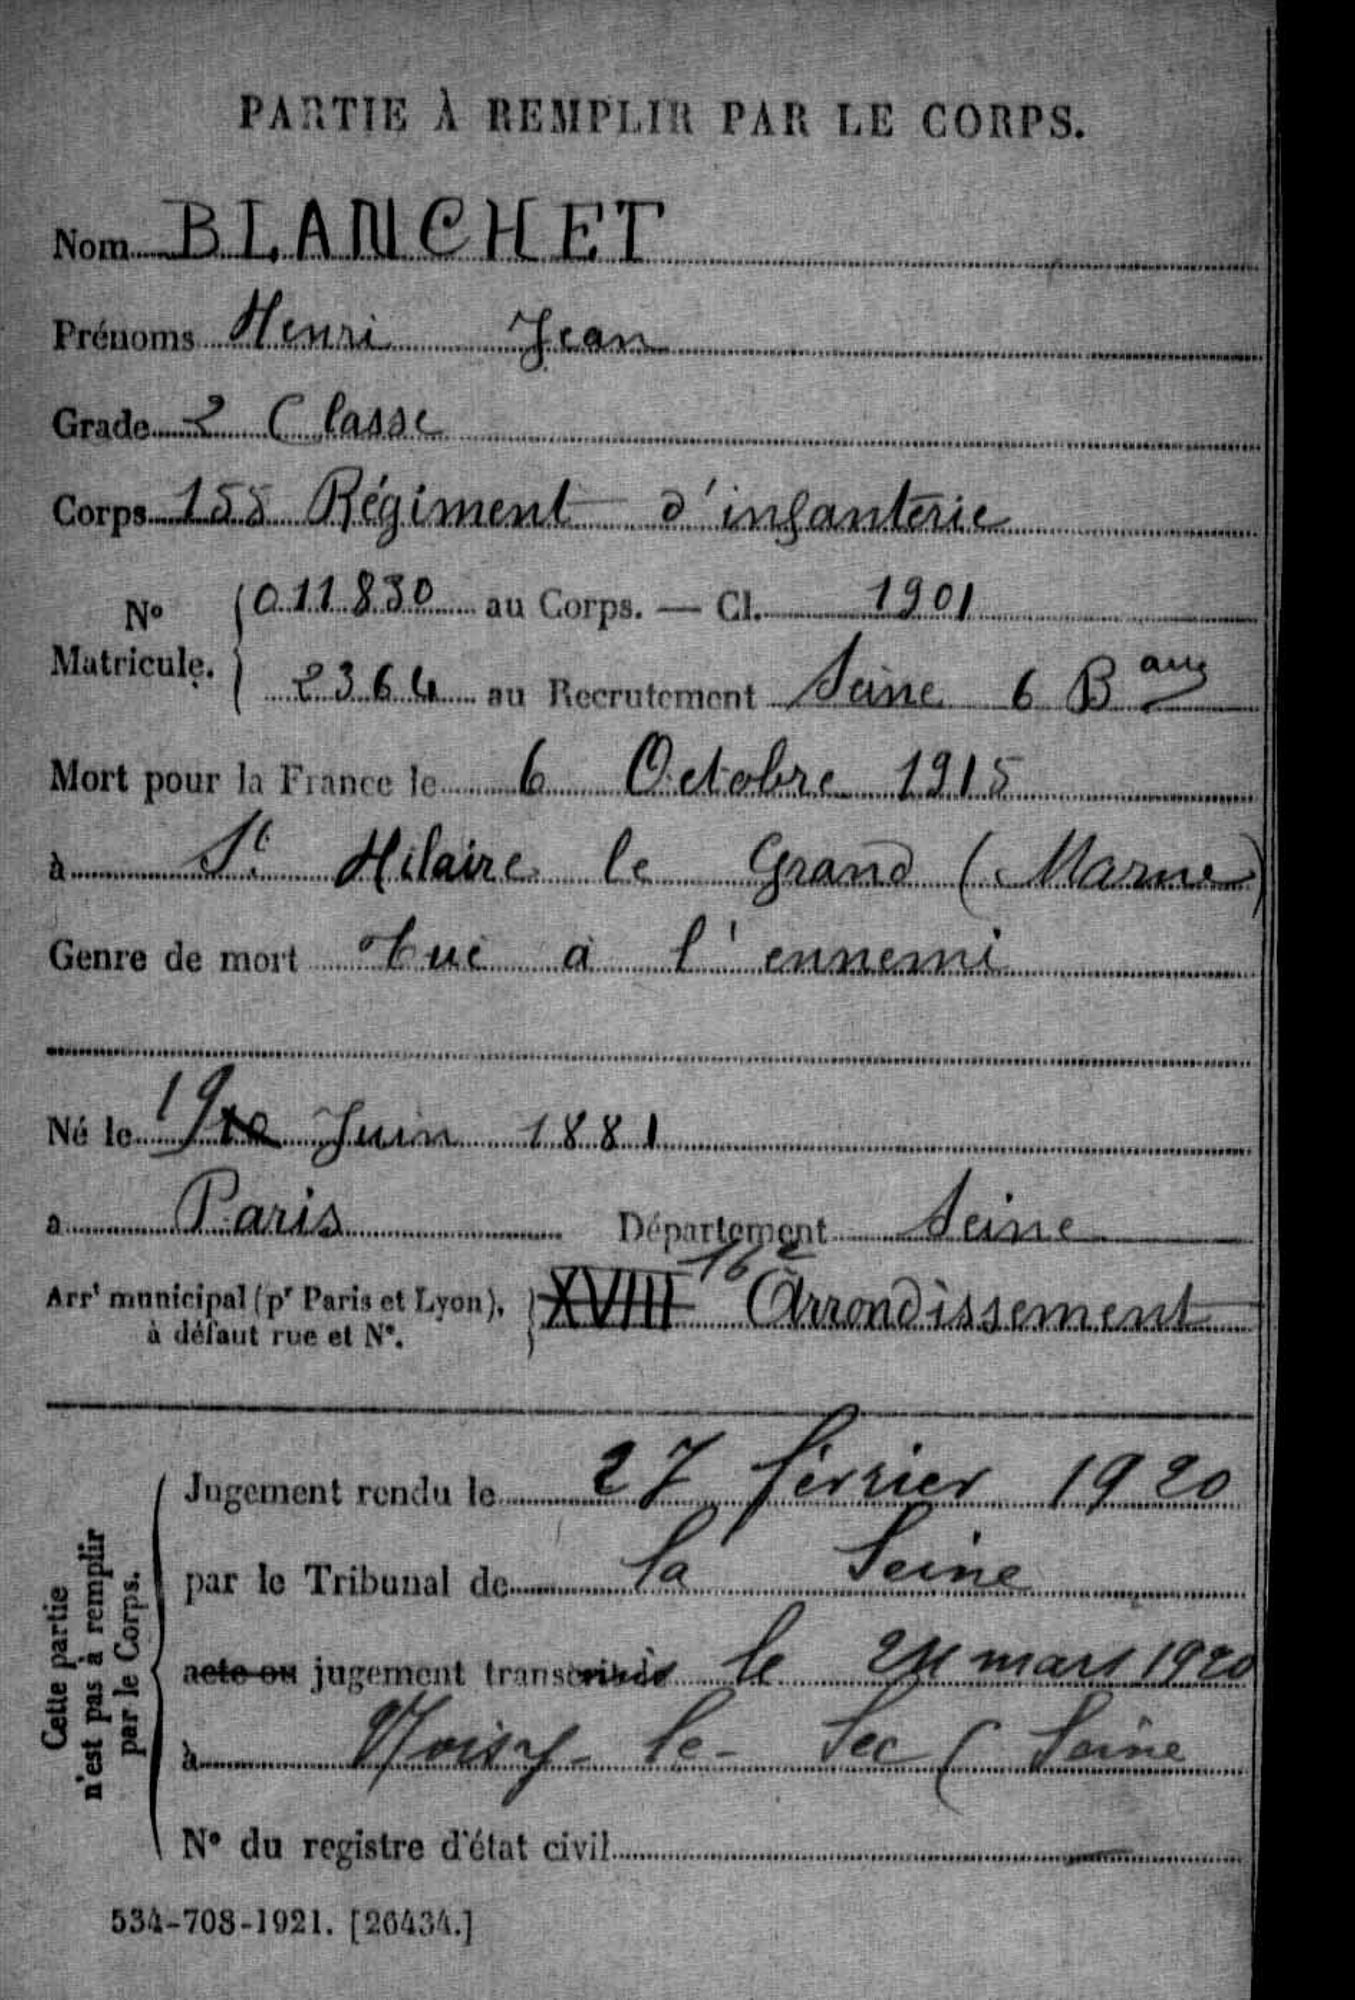 PARTIE À REMPLIR PAR LE CORPS.
Nom BLANCHET
Prénoms Henri Jean
Grade 2 Classe
Corps 155 Régiment d'infanterie
N° Matricule. 011830 au Corps. — Cl. 1901
2364 au Recrutement Seine 6 B au
Mort pour la France le 6 Octobre 1915
à St Hilaire le Grand (Marne)
Genre de mort Tué à l'ennemi
Né le 19 Juin 1881
a Paris Département Seine
Arrt municipal (pr Paris et Lyon), à défaut rue et N°. XVIII 16e Arrondissement
Cette partie n'est pas à remplir par le Corps.
Jugement rendu le 27 février 1920
par le Tribunal de la Seine
acte ou jugement transcrit le 24 mars 1920
à Noisy-le-Sec (Seine
N° du registre d'état civil
534-708-1921. [26434.]